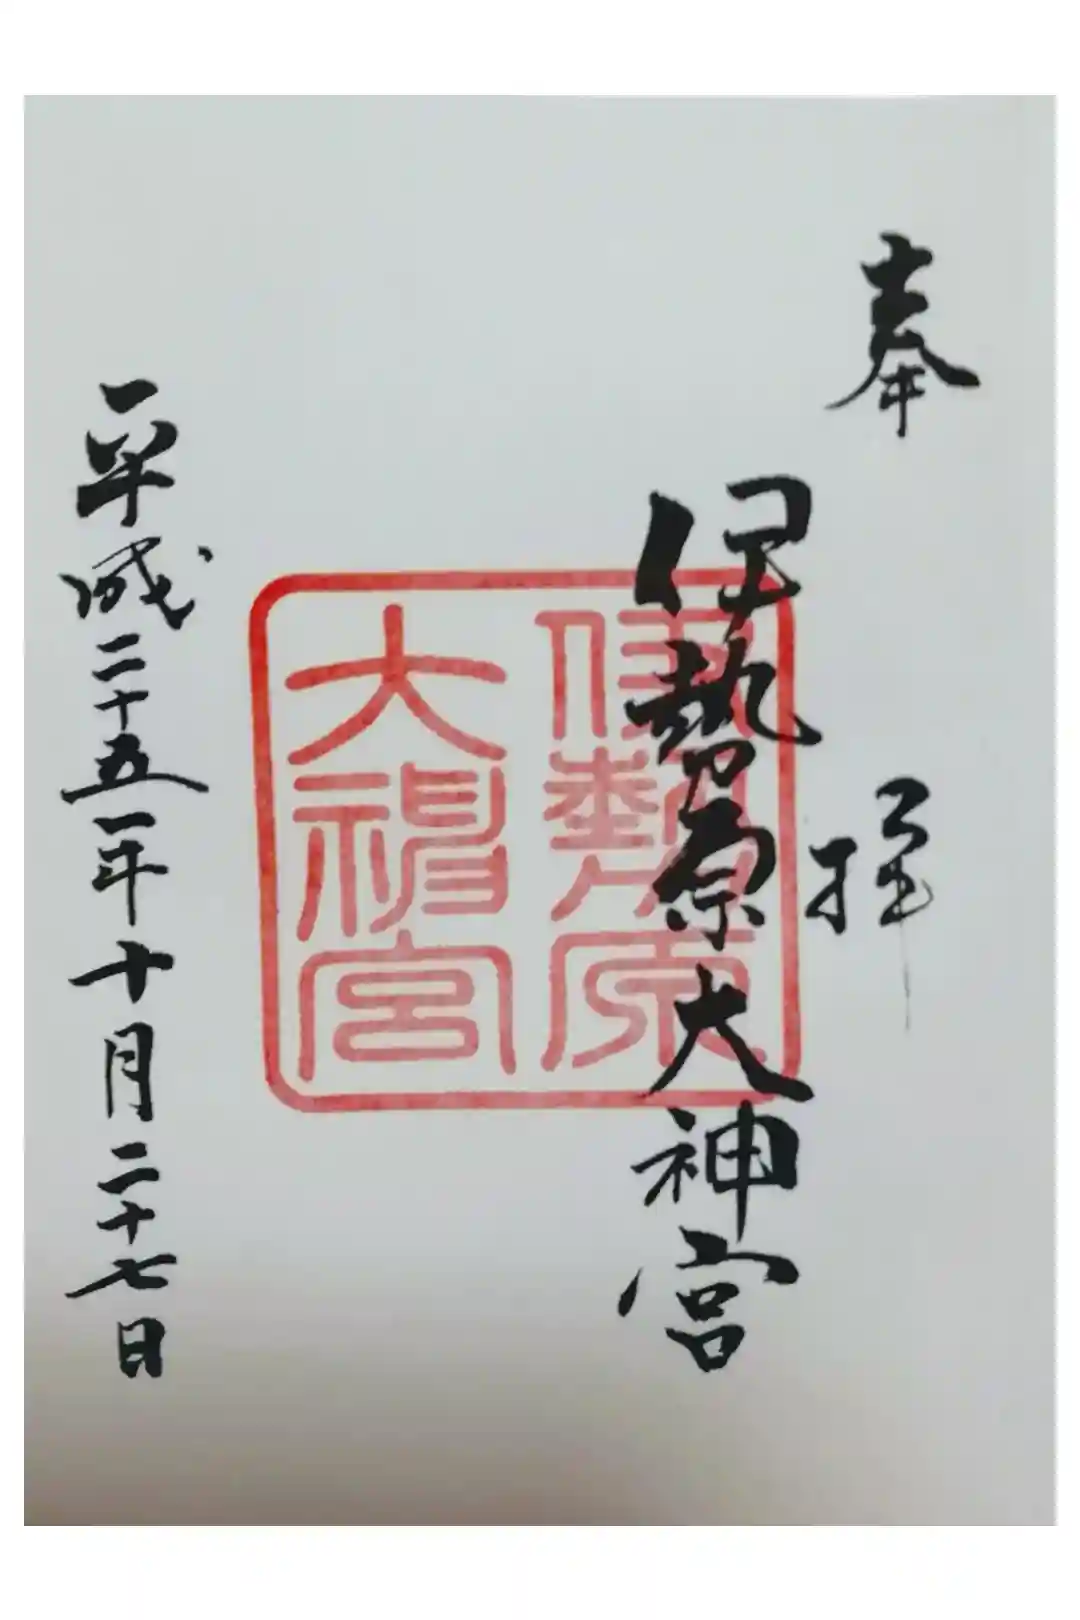 奉
拝
伊勢原大神宮
伊勢原
大神宮
平成二十五年十月二十七日